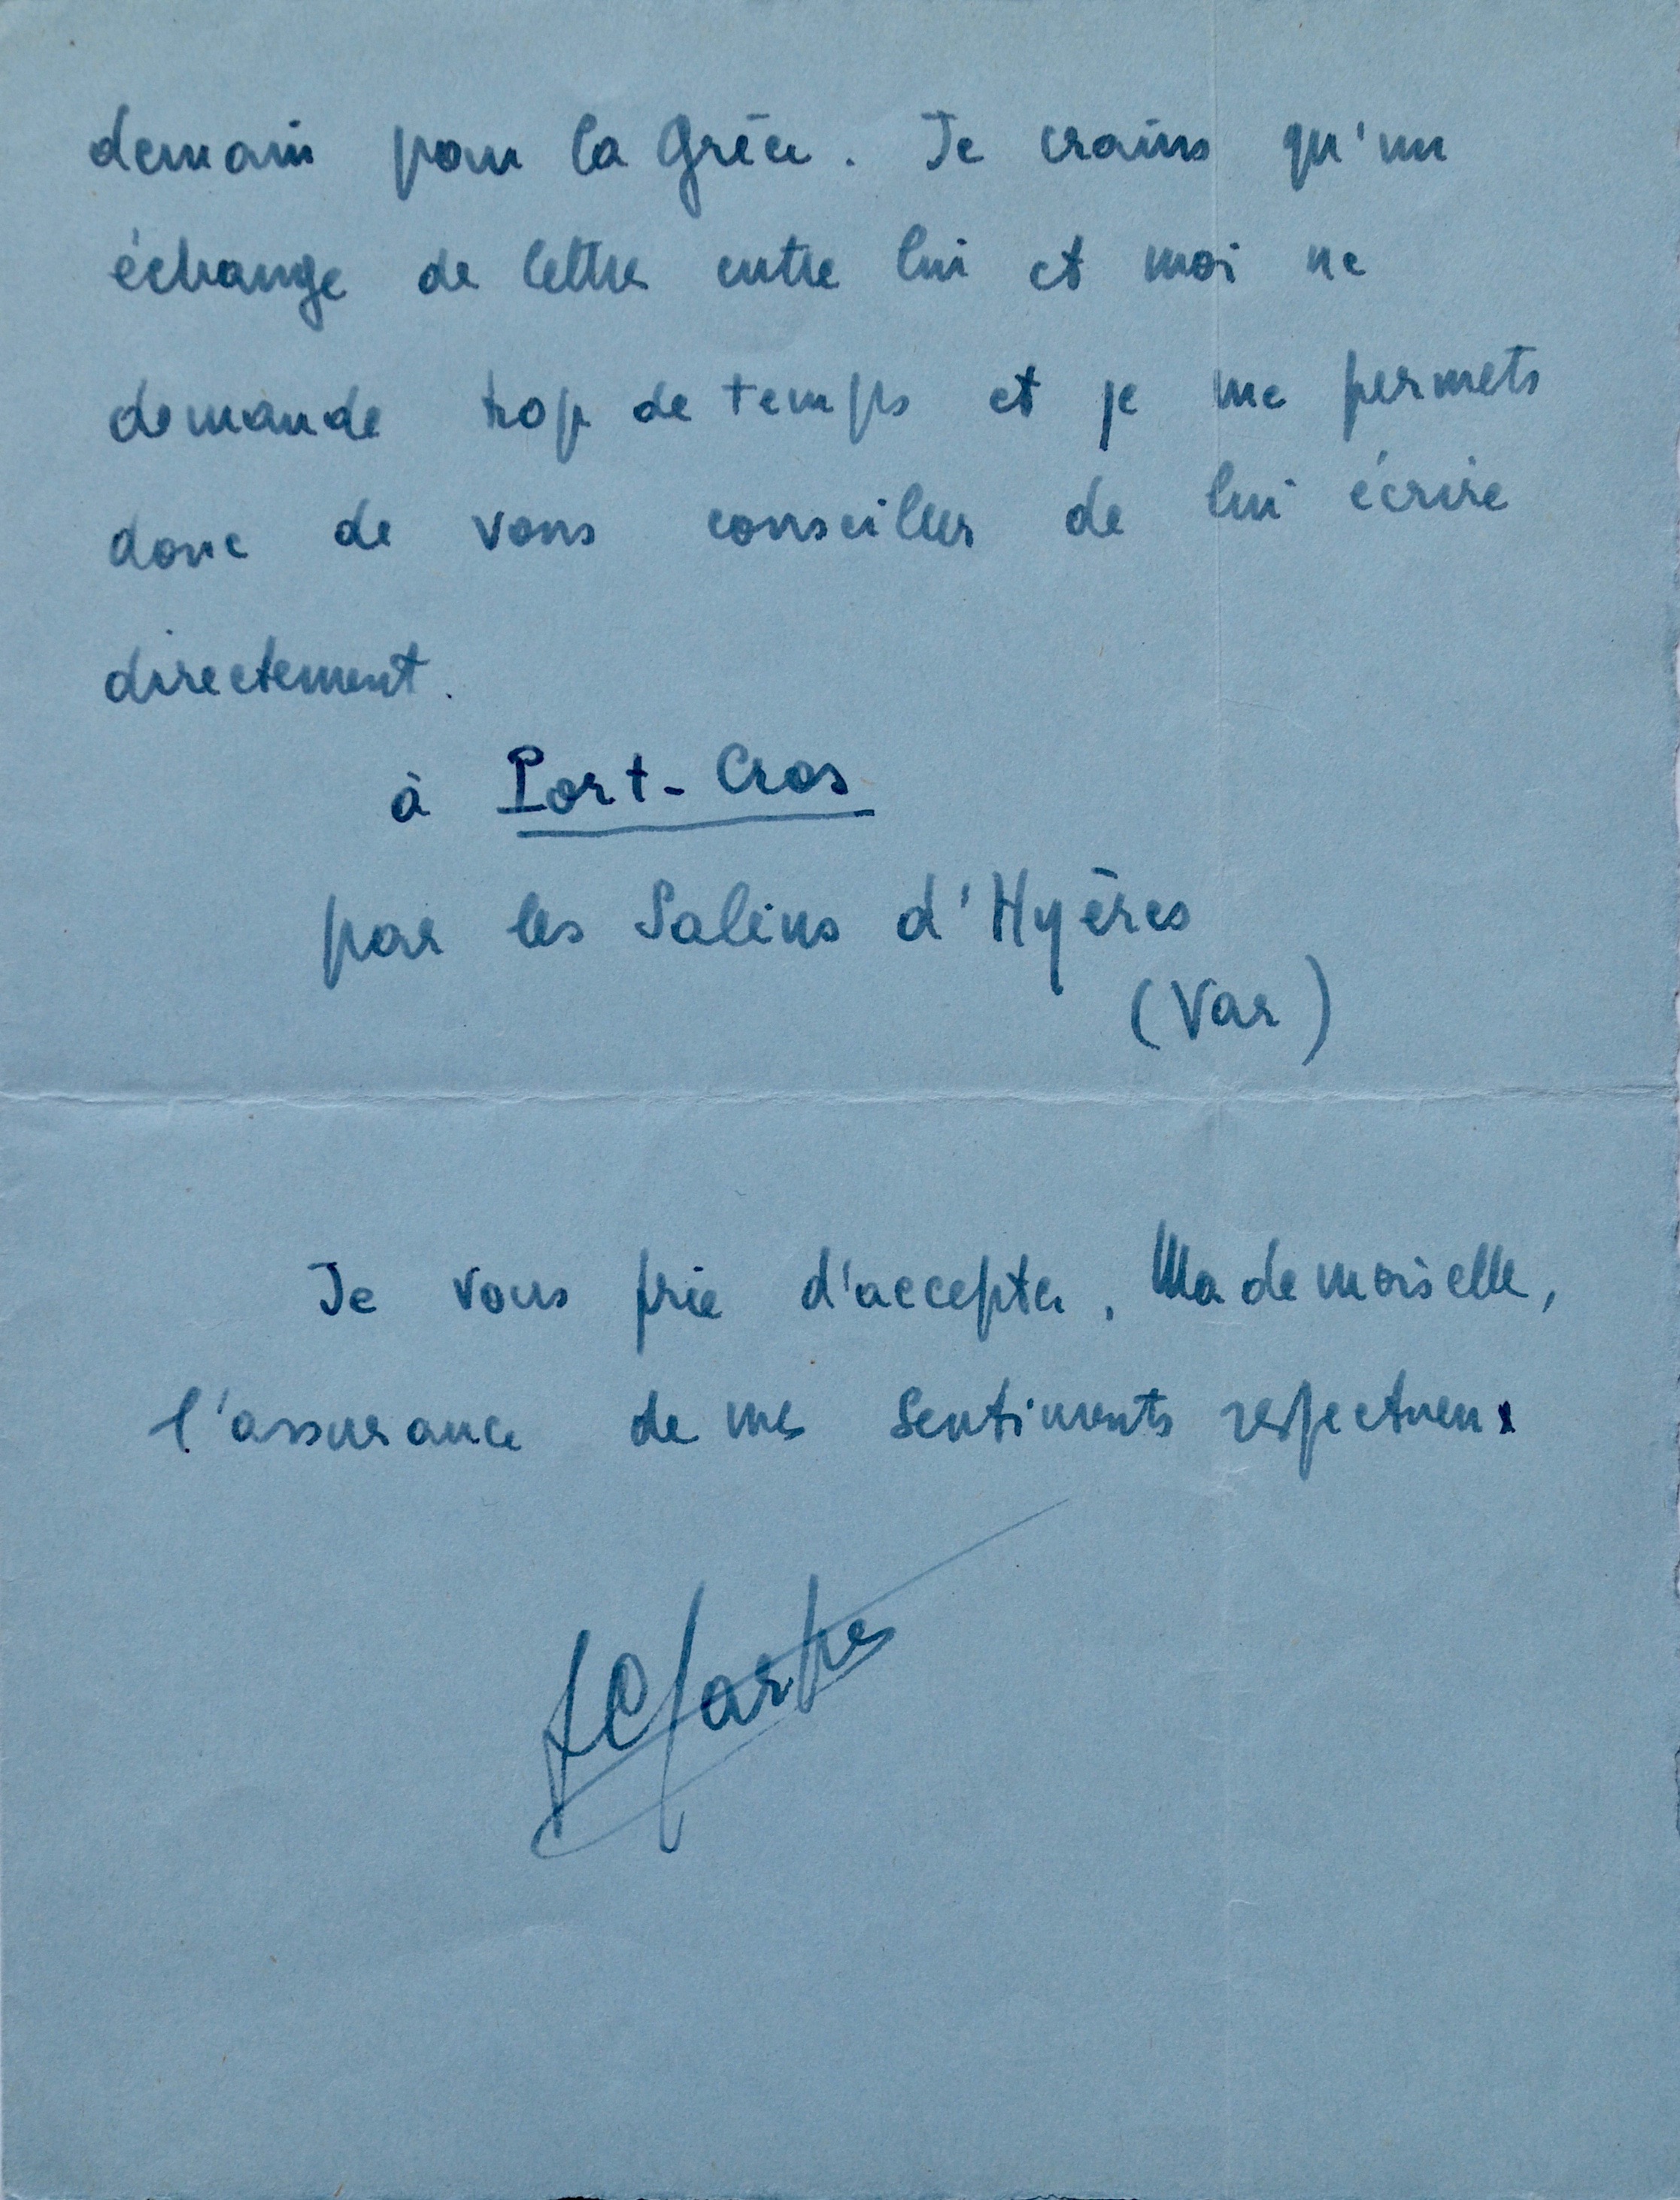 demain pour la Grèce. Je crains qu'un
échange de lettres entre lui et moi ne
demande trop de temps et je me permets
donc de vous conseiller de lui écrire
directement.
à Port-Cros
par les Salins d'Hyères
(Var)
Je vous prie d'accepter, Mademoiselle,
l'assurance de mes sentiments respectueux
JPSartre